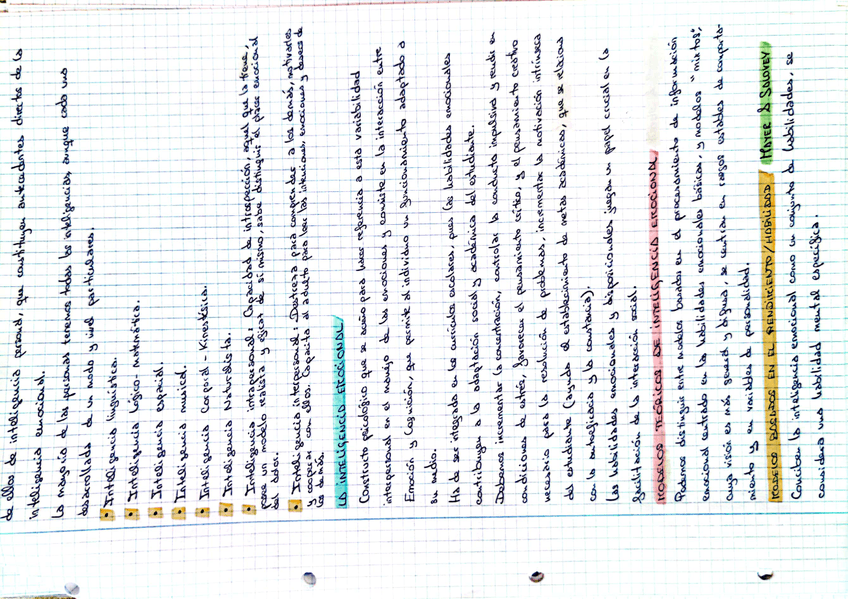 de ellos de inteligencia personal, que constituyen antecedentes directos de la
inteligencia emocional.
La mayoría de las personas tenemos todas las inteligencias, aunque cada una
desarrollada de un modo y nivel particulares.
• Inteligencia lingüística.
• Inteligencia lógico-matemática.
• Inteligencia espacial.
• Inteligencia musical.
• Inteligencia Corporal - Kinestésica.
• Inteligencia Naturalista.
• Inteligencia intrapersonal: Capacidad de introspección, aquel que la tiene,
posee un modelo realista y eficaz de sí mismo, sabe distinguir el placer emocional
del dolor.
• Inteligencia interpersonal: Destreza para comprender a los demás, motivarles
y cooperar con ellos. Capacita al adulto para leer las intenciones, emociones y deseos de
los demás.
LA INTELIGENCIA EMOCIONAL
Constructo psicológico que se acuñó para hacer referencia a esta variabilidad
interpersonal en el manejo de las emociones y consiste en la interacción entre
Emoción y Cognición, que permite al individuo un funcionamiento adaptado a
su medio.
Ha de ser integrada en los currículos escolares, pues las habilidades emocionales
contribuyen a la adaptación social y académica del estudiante.
Debemos incrementar la concentración, controlar la conducta impulsiva y rendir en
condiciones de estrés, favorecer el pensamiento crítico, y el pensamiento creativo
necesario para la resolución de problemas, incrementar la motivación intrínseca
del estudiante (ayuda al establecimiento de metas académicas, que se relaciona
con la autoeficacia y la constancia).
Las habilidades emocionales y disposicionales juegan un papel crucial en la
facilitación de la interacción social.
MODELOS TEÓRICOS DE INTELIGENCIA EMOCIONAL
Podemos distinguir entre modelos basados en el procesamiento de información
emocional centrado en las habilidades emocionales básicas, y modelos "mixtos",
cuya visión es más general y difusa, se centran en rasgos estables de comporta-
miento y en variables de personalidad.
MODELOS BASADOS EN EL RENDIMIENTO/HABILIDAD MAYER & SALOVEY
Conciben la inteligencia emocional como un conjunto de habilidades, se
considera una habilidad mental específica.